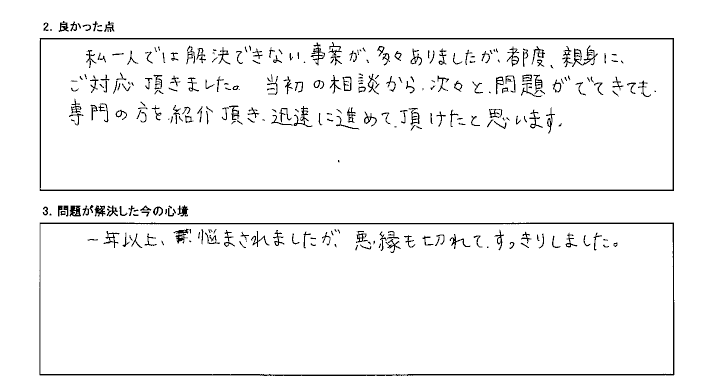 2. 良かった点
私一人では解決できない、事案が、多々ありましたが、都度、親身に、
ご対応頂きました。当初の相談から、次々と、問題がでてきても、
専門の方を、紹介頂き、迅速に進めて、頂けたと思います。
3. 問題が解決した今の心境
一年以上、悩まされましたが、悪縁も切れて、すっきりしました。